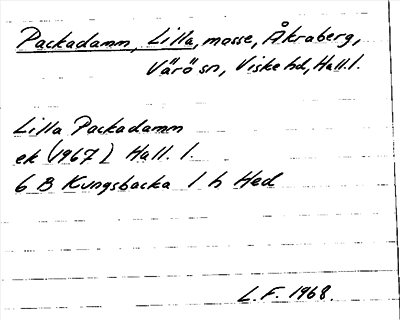 Packadamm, Lilla, mosse, Åkraberg,
Värö sn, Viske hd, Hall. l.
Lilla Packadamm
ek (1967) Hall. l.
6 B Kungsbacka 1 h Hed
L.F. 1968.